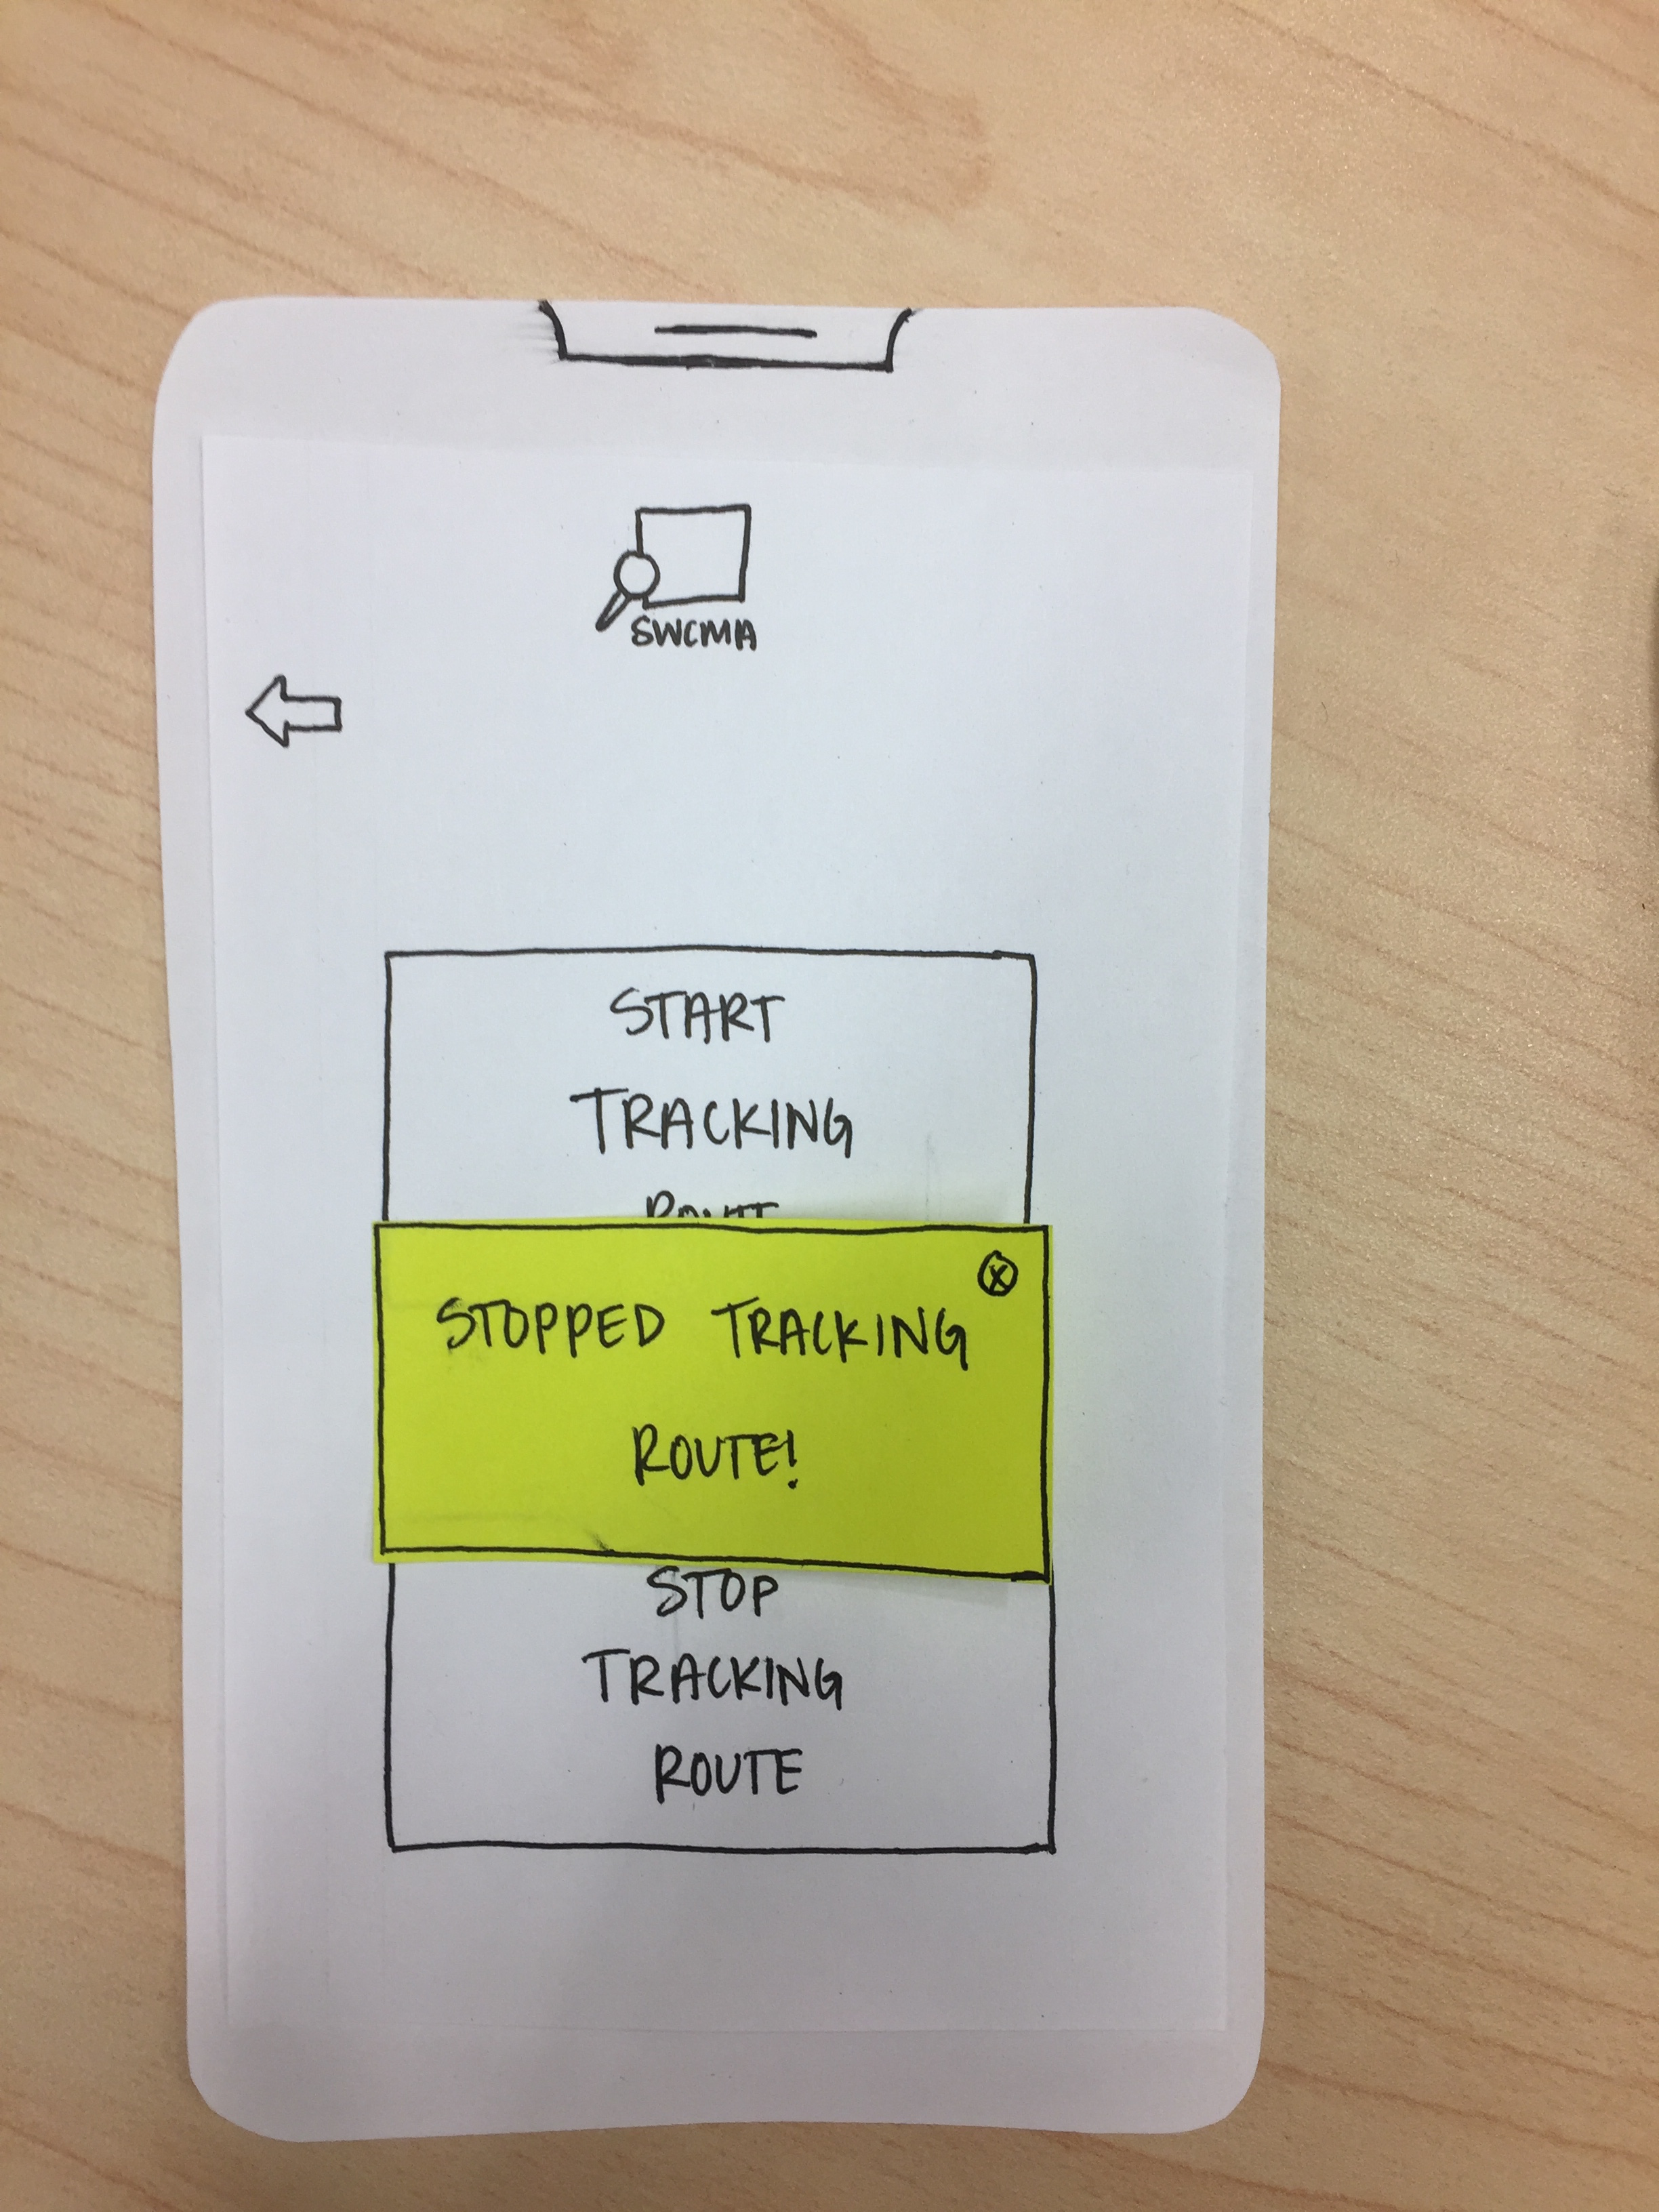 SWCMA
START
TRACKING
STOPPED TRACKING
ROUTE!
STOP
TRACKING
ROUTE